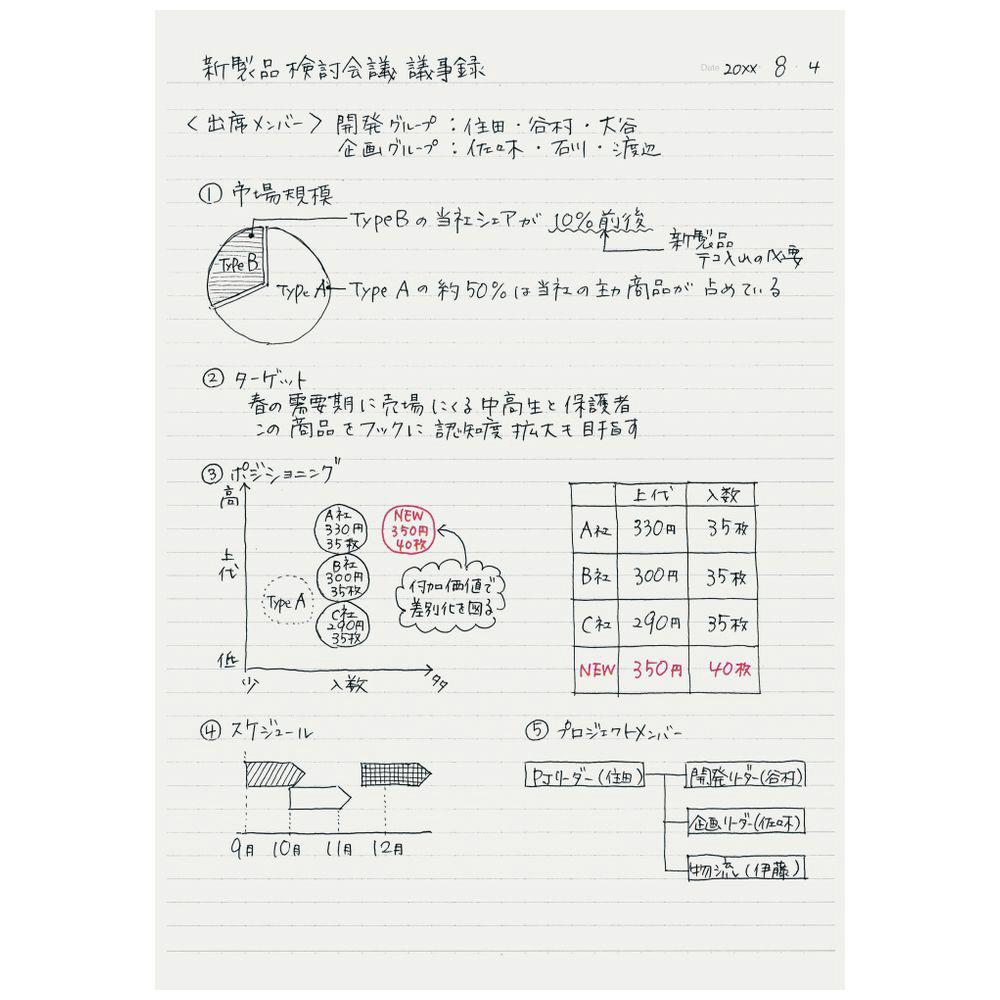 新製品検討会議 議事録
Date 20XX 8・4
〈出席メンバー〉 開発グループ：住田・谷村・大谷
企画グループ：佐々木・石川・渡辺
① 市場規模
Type Bの当社シェアが 10%前後
新製品
テコ入れの必要
Type B
Type A
Type Aの約50%は当社の主力商品が占めている
② ターゲット
春の需要期に売場にくる中高生と保護者
この商品をフックに認知度拡大も目指す
③ ポジショニング
高
上代
低
少
入数
多
A社
330円
35枚
NEW
350円
40枚
B社
300円
35枚
Type A
C社
290円
35枚
付加価値で
差別化を図る
上代 入数
A社 330円 35枚
B社 300円 35枚
C社 290円 35枚
NEW 350円 40枚
④ スケジュール
9月 10月 11月 12月
⑤ プロジェクトメンバー
PJリーダー(住田)
開発リーダー(谷村)
企画リーダー(佐々木)
物流(伊藤)